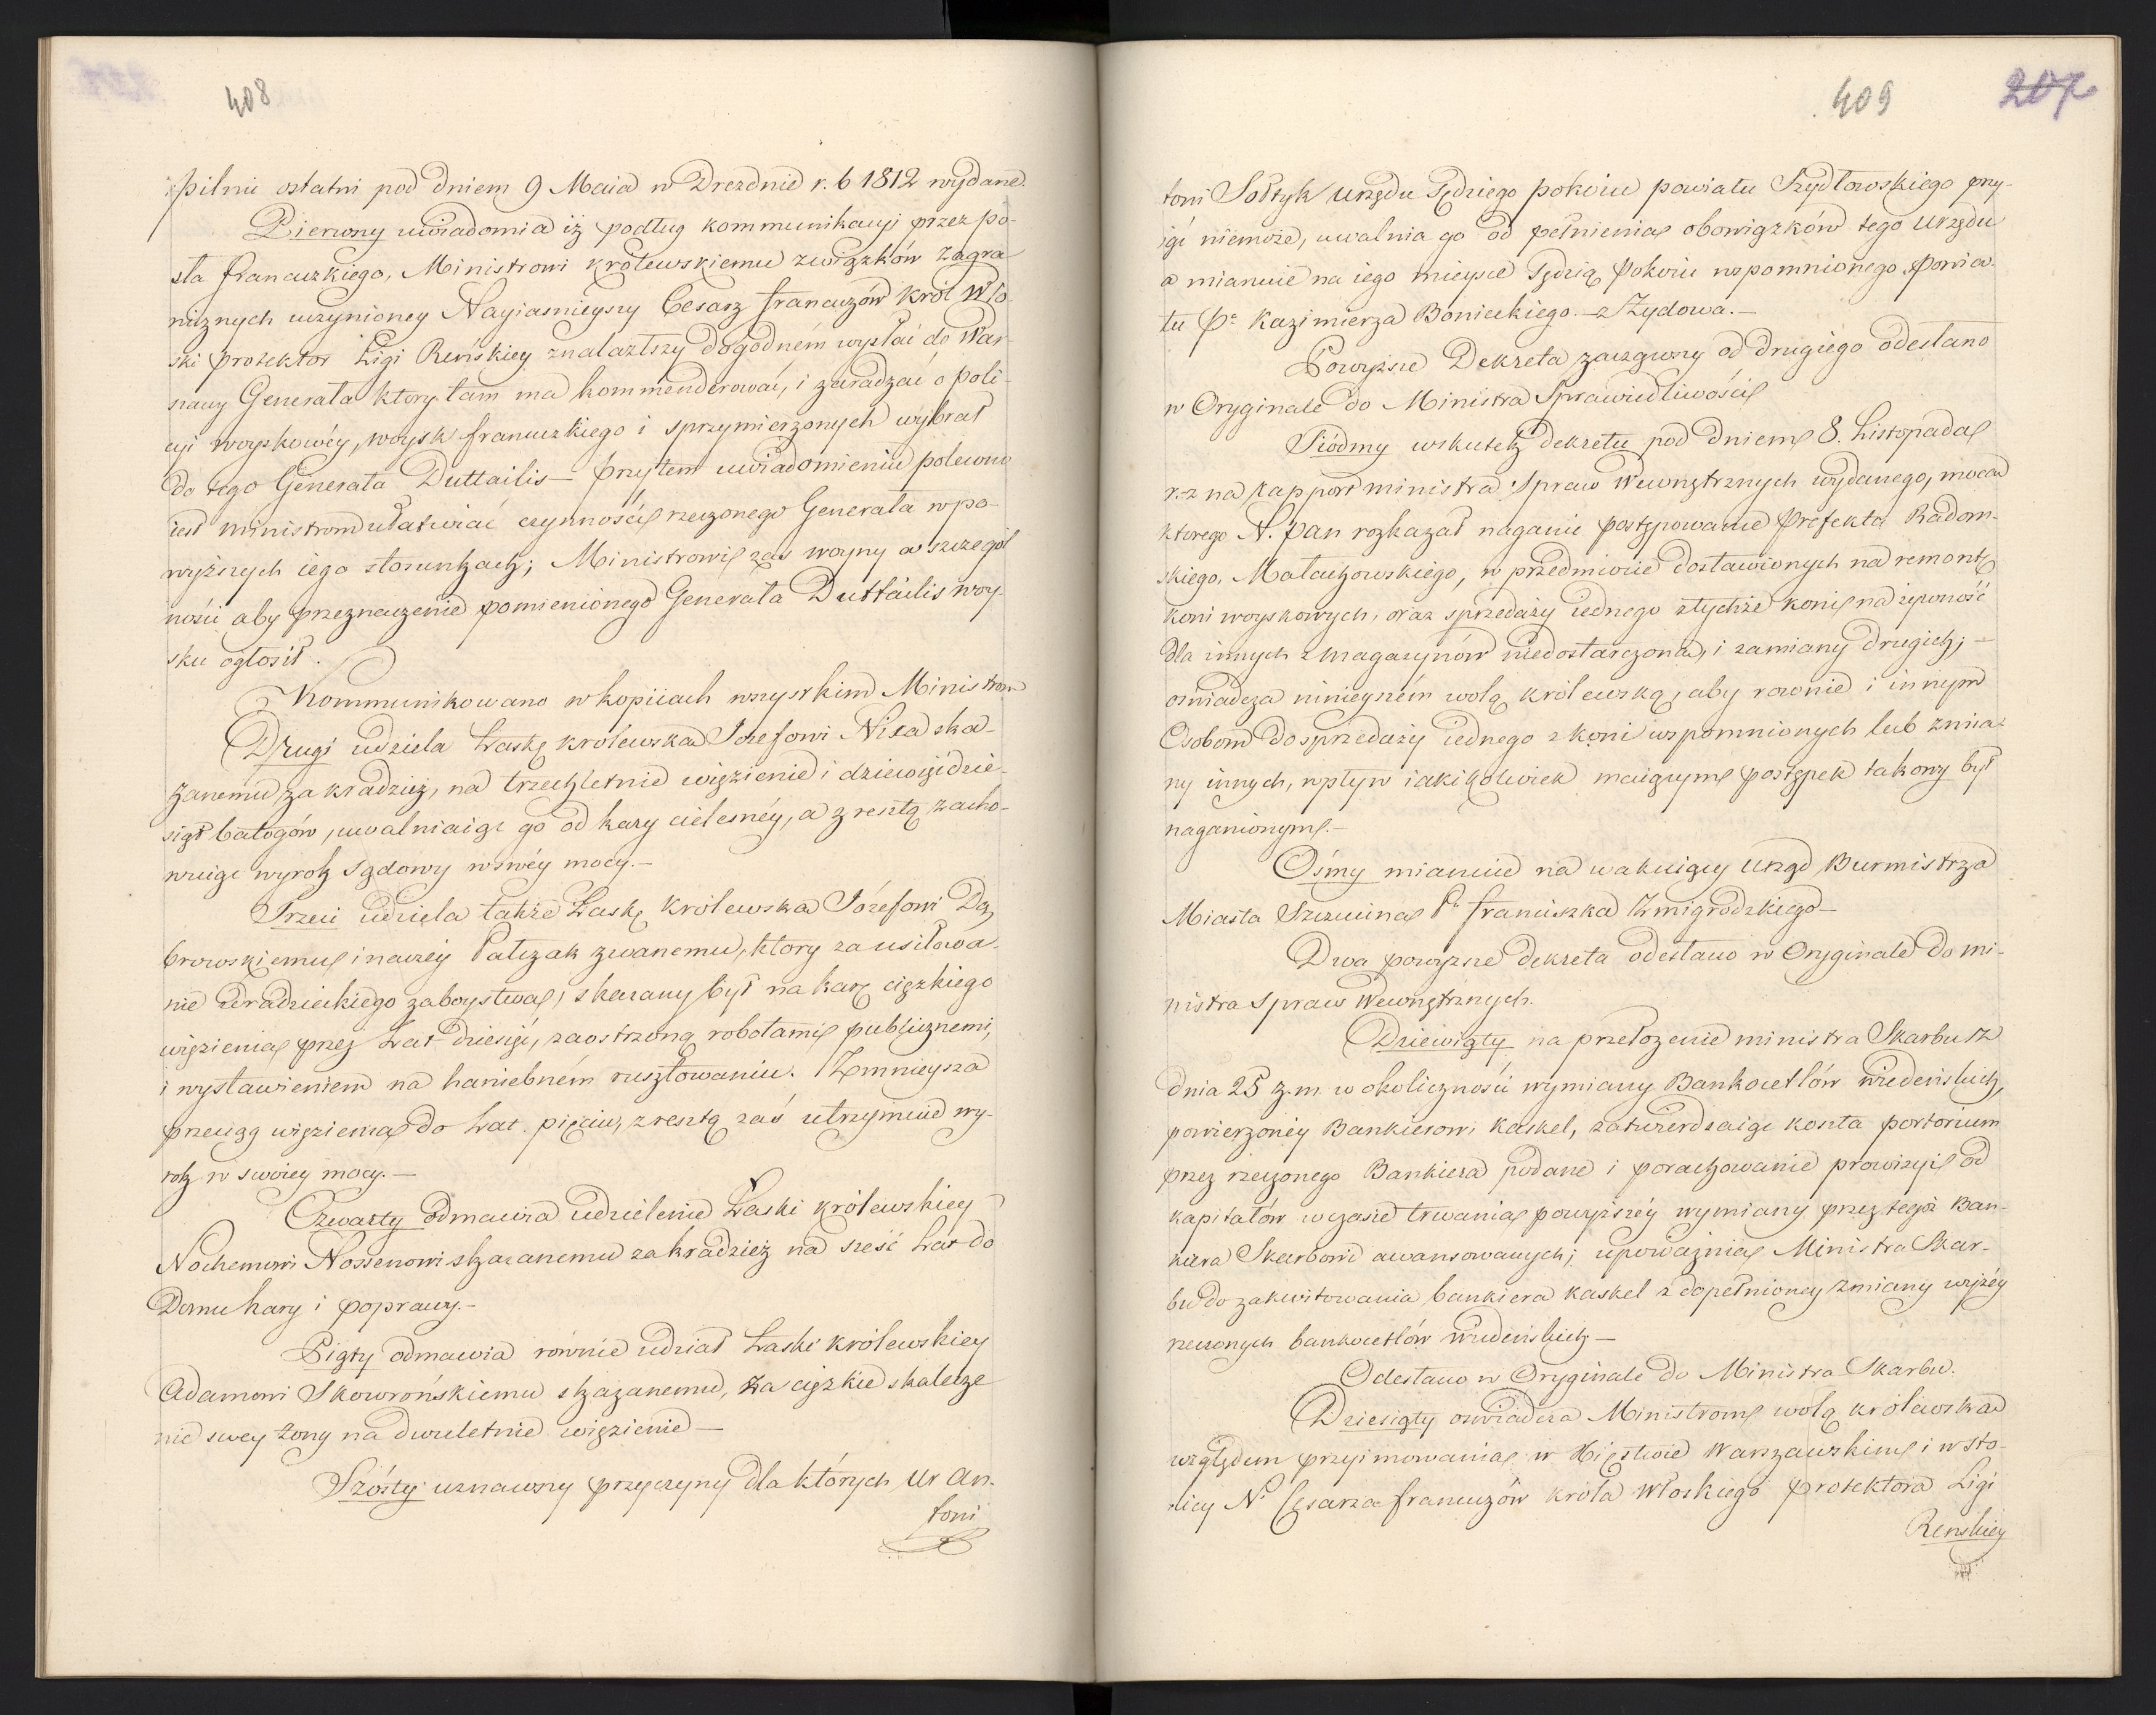 408
pilnie ostatni pod dniem 9 Maia w Dreznie r. b 1812 wydane.
Pierwszy uwiadomia iż podług kommunikacyi przez po-
sła Francuzkiego, Ministrowi królewskiemu związków Zagra-
nicznych uczynioney Nayiasnieyszy Cesarz francuzów Król Wło-
ski protektor Ligi Reńskiey znalazłszy dogodném wysłać do War-
szawy Generała ktory tam ma kommenderować, i zaradzać o poli-
cyi woyskowéy, woysk francuzkiego i sprzymierzonych wybrał
do tego Generała Duttailis – przytem uwiadomieniu polecono
iest ministrom ułatwiać czynności rzeczonego Generała w po-
wyższych iego stosunkach; Ministrowi zaś woyny w szczegól
ności aby przeznaczenie pomienionego Generała Duttailis woy-
sku ogłosił.
Kommunikowano w kopiiach wszystkim Ministrom
Drugi udziela Łaskę królewska Jozefowi Nixa ska-
zanemu za kradzież, na trzechletnie więzienie i dziewięćdzie-
siąt batogów, uwalniaiąc go od kary cielesnéy, a z resztą zacho-
wuiąc wyrok sądowy w swéy mocy.–
Trzeci udziela także Łaskę Królewska Józefowi Dą
browskiemu inaczéy Patczak zwanemu, ktory za usiłowa-
nie zdradzieckiego zaboystwa, skazany był na karę ciężkiego
więzienia przez Lat dziesięć, zaostrzoną robotami publicznemi,
i wystawieniem na haniebném rusztowaniu. Zmnieysza
przeciąg więzienia do Lat pięciu, z resztą zaś utrzymuie wy-
rok w swoiey mocy.–
Czwarty odmawia udzielenie Łaski królewskiey
Nochemowi Nossenowi skazanemu za kradzież na sześć Lat do
Domu kary i poprawy.–
Piąty odmawia równie udział Łaski królewskiey
Adamowi Skowrońskiemu skazanemu, za ciężkie skalecze
nie swey żony na dwuletnie więzienie –
Szósty uznawszy przyczyny dla których Ur An-
toni
409
207
toni Sołtyk urzędu Sędziego pokoiu powiatu Szydłowskiego przy-
iąć niemoże, uwalnia go od pełnienia obowiązków tego urzędu
a mianuie na iego mieysce Sędzią Pokoiu wspomnionego powia-
tu Pa Kazimierza Bonieckiego – z Żydowa.–
Powyższe Dekreta zacząwszy od drugiego odesłano
w Oryginale do Ministra Sprawiedliwości
Siódmy wskutek dekretu pod dniem 8. Listopada
r. z na rapport ministra Spraw Wewnętrznych wydanego, moca
ktorego N. Pan rozkazał naganić postępowanie Prefekta Radom-
skiego, Małachowskiego, w przedmiocie dostawionych na remontę
koni woyskowych, oraz sprzedaży iednego z tychże koni na żywność
dla innych z magazynów niedostarczona, i zamiany drugich; –
oswiadcza ninieyszém wolą królewską, aby rownie i innym
Osobom do sprzedaży iednego z koni wspomnionych lub zmia-
ny innych, wpływ iakikolwiek maiącym postępek takowy był
naganionym.–
Ósmy mianuie na wakuiący urząd Burmistrza
Miasta Szczucina Pa Franciszka Zmigrodzkiego –
Dwa powyższe dekreta odesłano w Oryginale do mi-
nistra Spraw Wewnętrznych.
Dziewiąty na przełożenie ministra Skarbu z
dnia 25 z. m. w okoliczności wymiany Bankocetlów wiedeńskich,
powierzonéy Bankierowi Kaskel, zatwierdzaiąc koszta portorium
przez rzeczonego Bankiera podane i porachowanie prowizyi od
kapitałów w czasie trwania powyższéy wymiany przez tegoż Ban-
kiera Skarbowi awansowanych; upoważnia Ministra Skar-
bu do zakwitowania bankiera Kaskel z dopełnioney zmiany wyżéy
rzeczonych bankocetlów wiedeńskich –
Odesłano w Oryginale do Ministra Skarbu.
Dziesiąty oswiadcza Ministrom wolą królewska
względem przyimowania w Xięstwie Warszawskim i w sto-
licy N. Cesarza francuzów króla Włoskiego protektora Ligi
Renskiey